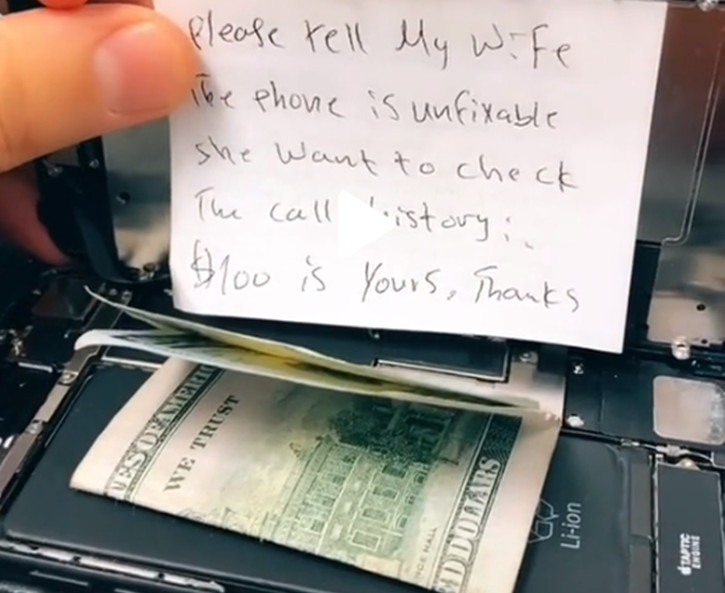 Please tell My Wife
The phone is unfixable
she Want to check
The call history:
$100 is Yours, Thanks
WE TRUST
DOLLARS
Li-ion
TAPTIC
ENGINE